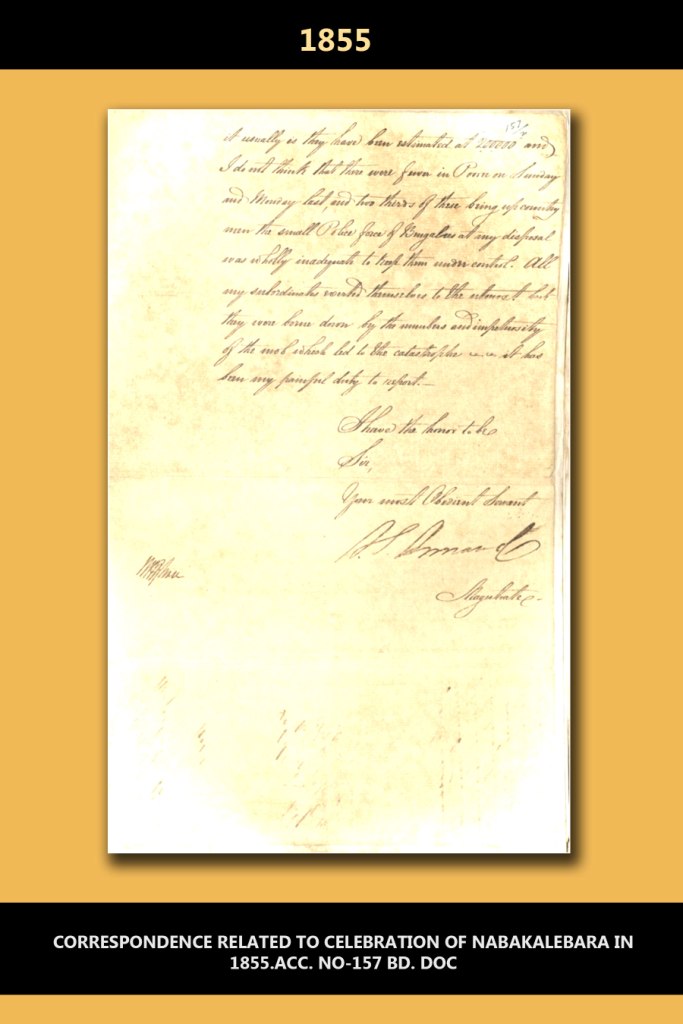 1855
157
it usually is they have been estimated at 200000 and
I do not think that there were fewer in Pooree on Sunday
and Monday last, and two thirds of these being up country
men the small Police force of at my disposal
was wholly inadequate to keep them under control. All
my subordinates exerted themselves to the utmost but
they were borne down by the numbers and impetuosity
of the mob which led to the catastrophe it has
been my painful duty to report.—
I have the honor to be
Sir,
Your most Obedient Servant
Magistrate
CORRESPONDENCE RELATED TO CELEBRATION OF NABAKALEBARA IN
1855.ACC. NO-157 BD. DOC